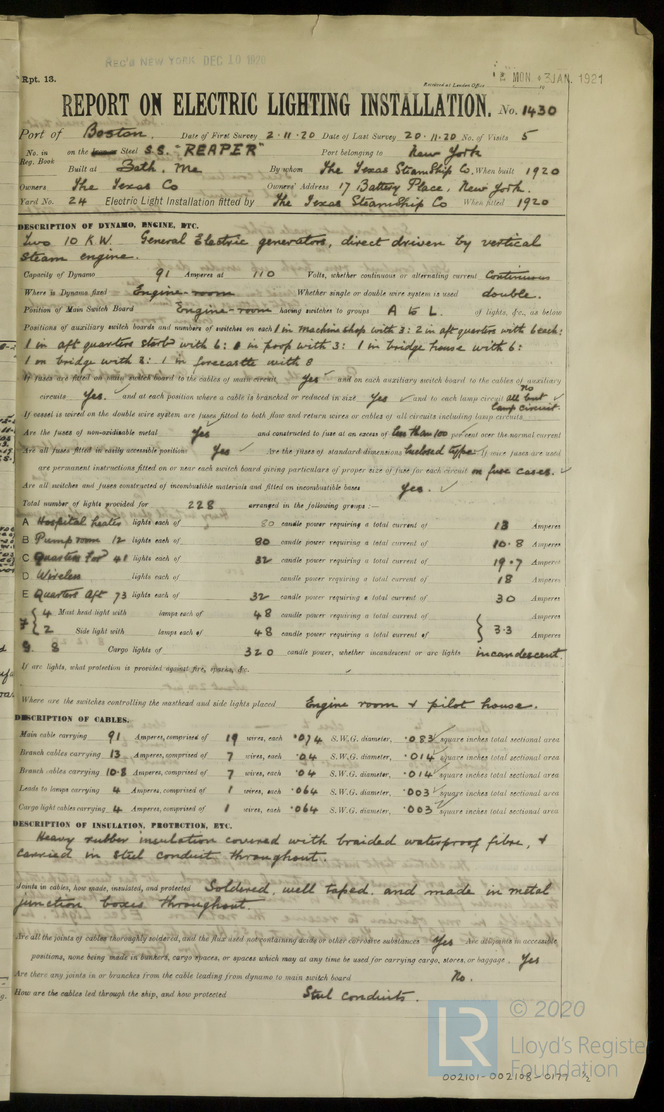 Rec'd NEW YORK DEC 10 1920
Rpt. 13.
Received at London Office
MON. 3 JAN. 1921
REPORT ON ELECTRIC LIGHTING INSTALLATION. No. 1430
Port of Boston. Date of First Survey 2·11·20 Date of Last Survey 20·11·20 No. of Visits 5
No. in Reg. Book on the Steel S.S. "REAPER" Port belonging to New York
Built at Bath, Me By whom The Texas SteamShip Co. When built 1920
Owners The Texas Co Owners' Address 17 Battery Place, New York.
Yard No. 24 Electric Light Installation fitted by The Texas SteamShip Co When fitted 1920
DESCRIPTION OF DYNAMO, ENGINE, ETC.
Two 10 K.W. General Electric generators, direct driven by vertical
steam engine.
Capacity of Dynamo 91 Amperes at 110 Volts, whether continuous or alternating current Continuous
Where is Dynamo fixed Engine-room Whether single or double wire system is used double.
Position of Main Switch Board Engine-room having switches to groups A to L. of lights, &c., as below
Positions of auxiliary switch boards and numbers of switches on each 1 in machine shop with 3: 2 in aft quarters with 6 each:
1 in aft quarters starb with 6: in poop with 3: 1 in bridge house with 6:
1 on bridge with 3: 1 in forecastle with 8
If fuses are fitted on main switch board to the cables of main circuit Yes and on each auxiliary switch board to the cables of auxiliary
circuits Yes. and at each position where a cable is branched or reduced in size Yes and to each lamp circuit No all but
If vessel is wired on the double wire system are fuses fitted to both flow and return wires or cables of all circuits including lamp circuits lamp circuit.
Are the fuses of non-oxidisable metal Yes and constructed to fuse at an excess of less than 100 per cent over the normal current
Are all fuses fitted in easily accessible positions Yes Are the fuses of standard dimensions Enclosed type If wire fuses are used
are permanent instructions fitted on or near each switch board giving particulars of proper size of fuse for each circuit on fuse cases.
Are all switches and fuses constructed of incombustible materials and fitted on incombustible bases Yes.
Total number of lights provided for 228 arranged in the following groups :—
A Hospital lights each of 80 candle power requiring a total current of 13 Amperes
B Pump room 12 lights each of 80 candle power requiring a total current of 10·8 Amperes
C Quarters For 41 lights each of 32 candle power requiring a total current of 19·7 Amperes
D Wireless lights each of candle power requiring a total current of 18 Amperes
E Quarters Aft 73 lights each of 32 candle power requiring a total current of 30 Amperes
4 Mast head light with lamps each of 48 candle power requiring a total current of 3·3 Amperes
2 Side light with lamps each of 48 candle power requiring a total current of
8 Cargo lights of 320 candle power, whether incandescent or arc lights incandescent
If arc lights, what protection is provided against fire, sparks, &c.
Where are the switches controlling the masthead and side lights placed Engine room & pilot house.
DESCRIPTION OF CABLES.
Main cable carrying 91 Amperes, comprised of 19 wires, each ·074 S.W.G. diameter, ·083 square inches total sectional area
Branch cables carrying 13 Amperes, comprised of 7 wires, each ·04 S.W.G. diameter, ·014 square inches total sectional area
Branch cables carrying 10·8 Amperes, comprised of 7 wires, each ·04 S.W.G. diameter, ·014 square inches total sectional area
Leads to lamps carrying 4 Amperes, comprised of 1 wires, each ·064 S.W.G. diameter, ·003 square inches total sectional area
Cargo light cables carrying 4 Amperes, comprised of 1 wires, each ·064 S.W.G. diameter, ·003 square inches total sectional area
DESCRIPTION OF INSULATION, PROTECTION, ETC.
Heavy rubber insulation covered with braided waterproof fibre, &
carried in steel conduit throughout.
Joints in cables, how made, insulated, and protected Soldered, well taped, and made in metal
junction boxes throughout.
Are all the joints of cables thoroughly soldered, and the flux used not containing acids or other corrosive substances Yes Are all joints in accessible
positions, none being made in bunkers, cargo spaces, or spaces which may at any time be used for carrying cargo, stores, or baggage. Yes
Are there any joints in or branches from the cable leading from dynamo to main switch board No.
How are the cables led through the ship, and how protected Steel conduits.
© 2020
LR Lloyd's Register
Foundation
002101-002108-0177 1/2